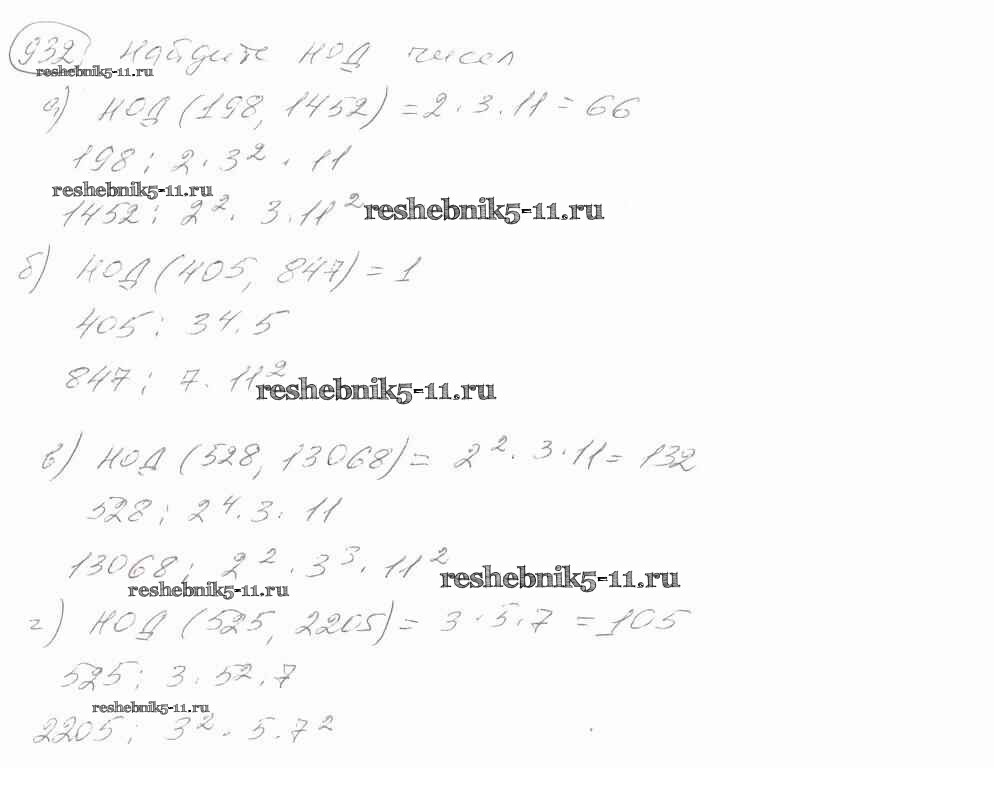 932 Найдите НОД чисел
reshebnik5-11.ru
а) НОД (198, 1452) = 2 · 3 · 11 = 66
198 ; 2 · 3² · 11
reshebnik5-11.ru
1452 ; 2² · 3 · 11² reshebnik5-11.ru
б) НОД (405, 847) = 1
405 ; 34 · 5
847 ; 7 · 11² reshebnik5-11.ru
в) НОД (528, 13068) = 2² · 3 · 11 = 132
528 ; 2⁴ · 3 · 11
13068 ; 2² · 3³ · 11² reshebnik5-11.ru
reshebnik5-11.ru
г) НОД (525, 2205) = 3 · 5 · 7 = 105
525 ; 3 · 5² · 7
reshebnik5-11.ru
2205 ; 3² · 5 · 7²